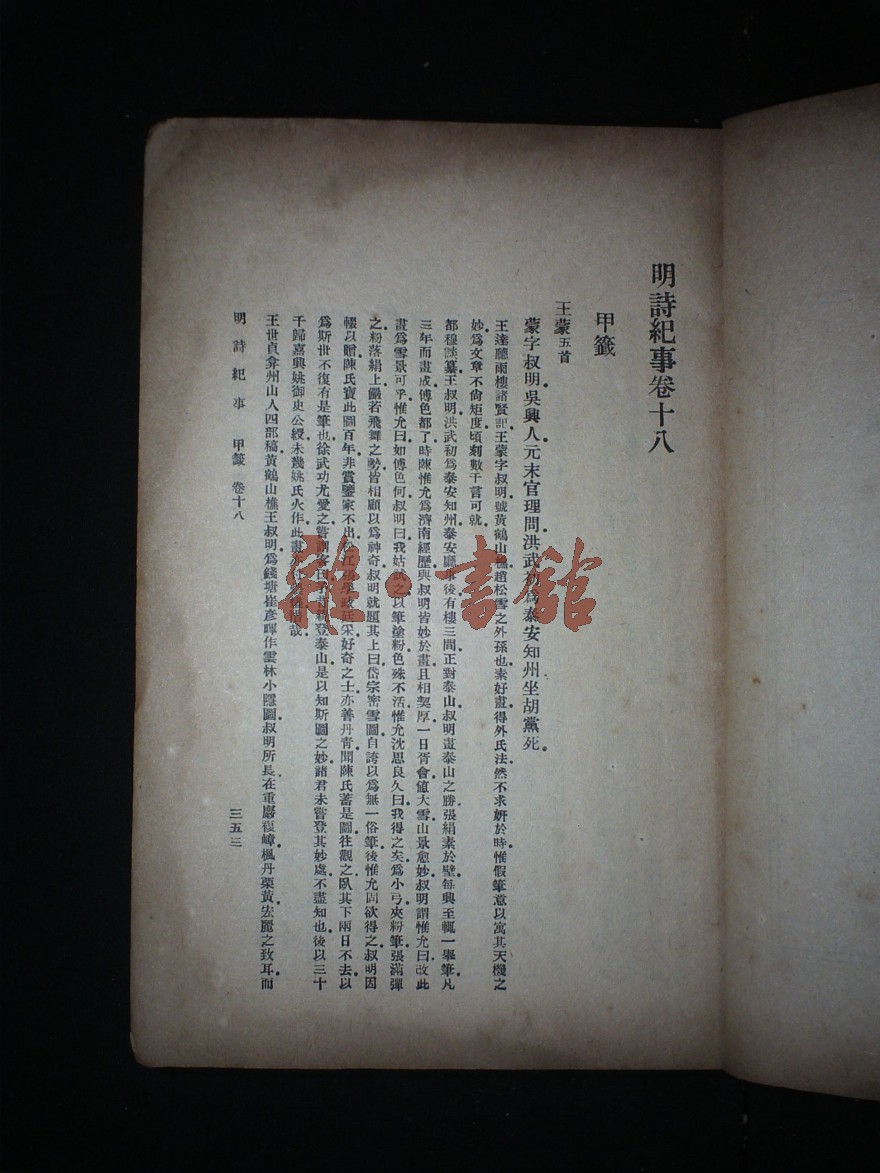 明詩紀事卷十八
甲籤
王蒙五首
蒙字叔明吳興人元末官理問洪武初為泰安知州坐胡黨死。
王逵聽雨樓諸賢記王蒙字叔明號黃鶴山樵趙松雪之外孫也素好畫得外氏法然不求妍於時惟假筆意以寓其天機之
妙為文章不尙矩度頃刻數千言可就。
都穆談纂王叔明洪武初為泰安知州泰安廳事後有樓三間正對泰山叔明畫泰山之勝張絹素於壁每興至輒一舉筆凡
三年而畫成傅色都了時陳惟允為濟南經歷與叔明皆妙於畫且相契厚一日胥會値大雪山景愈妙叔明謂惟允曰改此
畫為雪景可乎惟允曰如傅色何叔明曰我姑試之以筆塗粉色殊不活惟允沈思良久曰我得之矣為小弓夾粉筆張滿彈
之粉落絹上儼若飛舞之勢皆相顧以為神奇叔明就題其上曰岱宗密雪圖自誇以為無一俗筆後惟允固欲得之叔明因
輟以贈陳氏寶此圖百年非賞鑒家不出松江張學政廷采好奇之士亦善丹靑聞陳氏蓄是圖往觀之臥其下兩日不去以
為斯世不復有是筆也徐武功尤愛之嘗謂客曰予昔親登泰山是以知斯圖之妙諸君未嘗登其妙處不盡知也後以三十
千歸嘉興姚御史公綬未幾姚氏火作此畫哉
王世貞弇州山人四部稿黃鶴山樵王叔明為錢塘崔彥暉作雲林小隱圖叔明所長在重巖複嶂楓丹栗黃宏麗之致耳而
明詩紀事 甲籤 卷十八
三五三
雅・書館